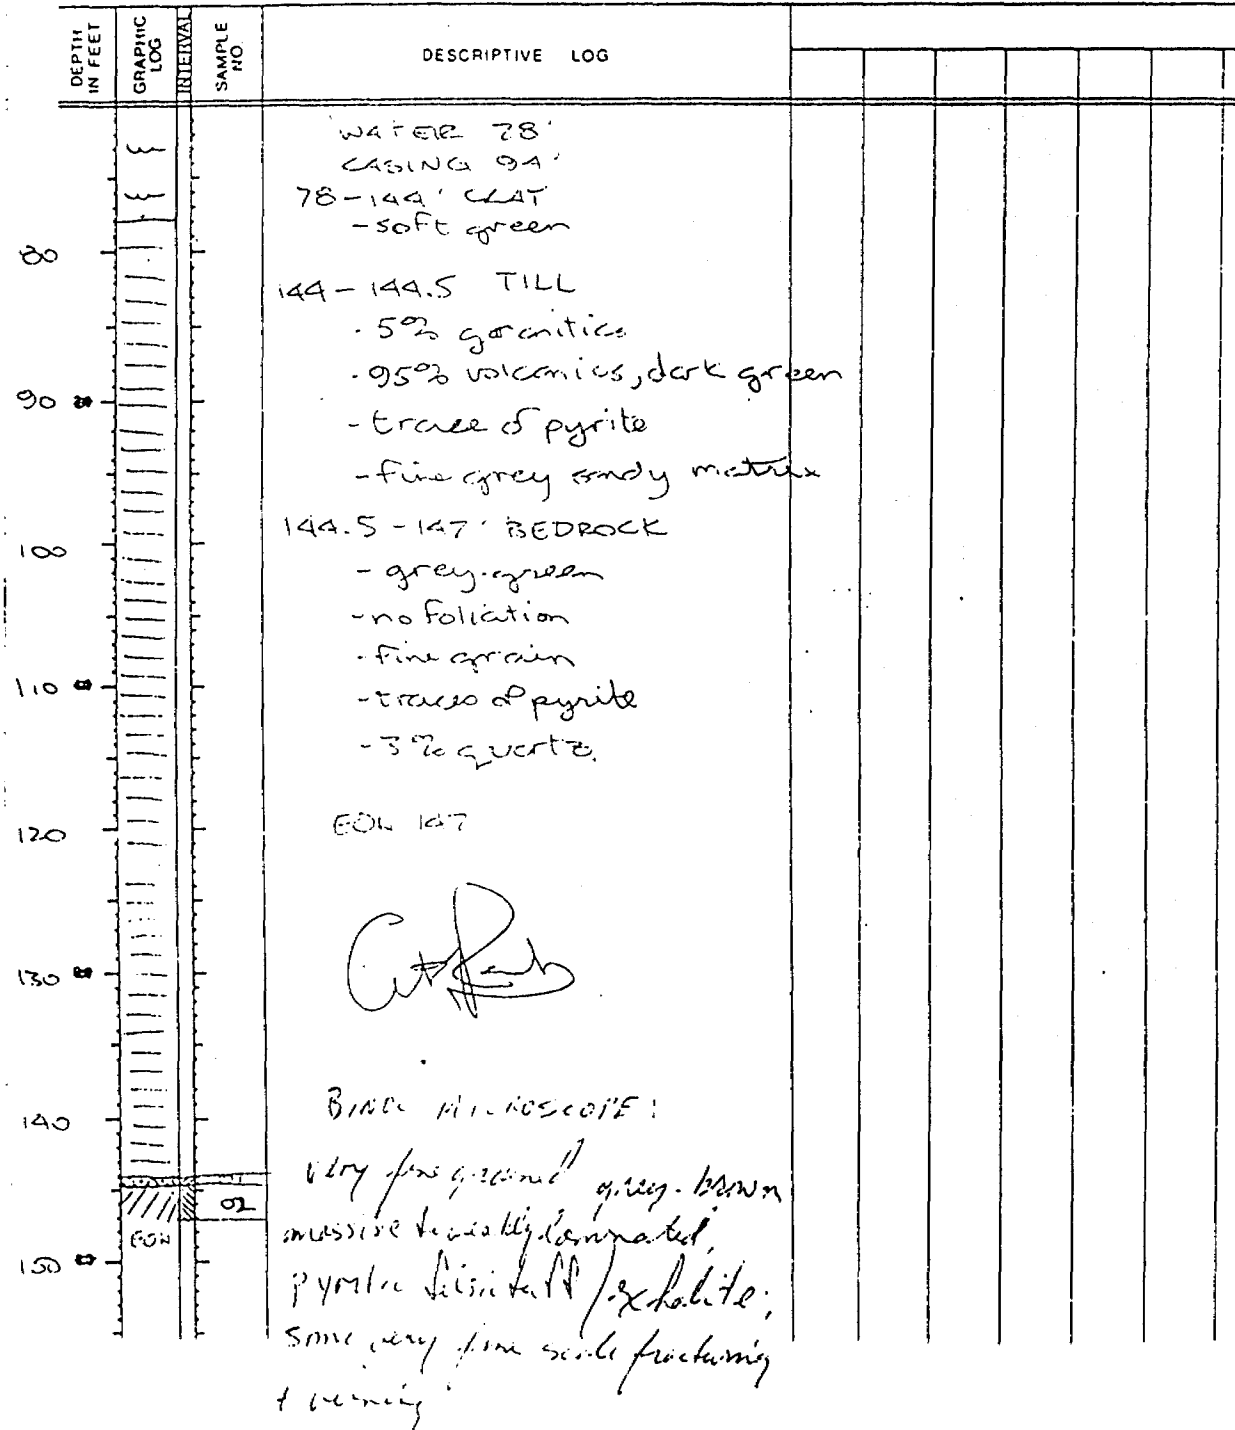 DEPTH IN FEET
GRAPHIC LOG
INTERVAL
SAMPLE NO.
DESCRIPTIVE LOG
WATER 78'
CASING 94'
78-144' CLAY
-soft green
144-144.5 TILL
-5% granitics
-95% volcanics, dark green
-trace of pyrite
-fine grey sandy matrix
144.5-147' BEDROCK
-grey-green
-no foliation
-fine grain
-traces of pyrite
-3% quartz.
EOH 147
80
90
100
110
120
130
140
150
EOH
BINOC MICROSCOPE:
very fine grained grey-brown
massive to weakly laminated,
pyritic felsic tuff/exhalite;
some very fine scale fracturing
+ veining